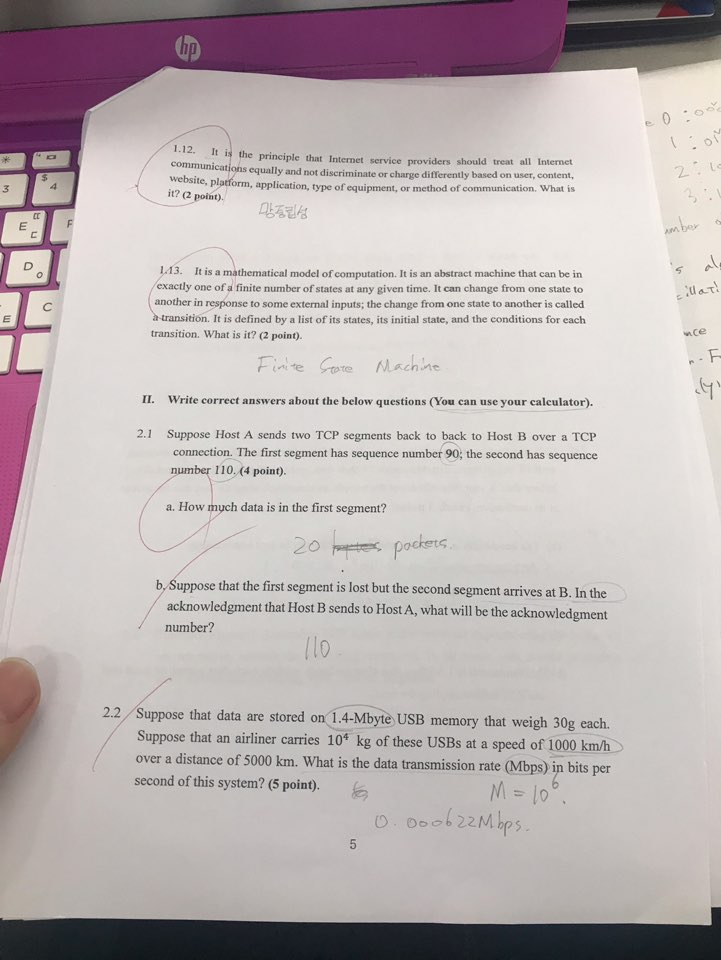 hp
1.12. It is the principle that Internet service providers should treat all Internet
communications equally and not discriminate or charge differently based on user, content,
website, platform, application, type of equipment, or method of communication. What is
it? (2 point).
망중립성
1.13. It is a mathematical model of computation. It is an abstract machine that can be in
exactly one of a finite number of states at any given time. It can change from one state to
another in response to some external inputs; the change from one state to another is called
a transition. It is defined by a list of its states, its initial state, and the conditions for each
transition. What is it? (2 point).
Finite State Machine
II. Write correct answers about the below questions (You can use your calculator).
2.1 Suppose Host A sends two TCP segments back to back to Host B over a TCP
connection. The first segment has sequence number 90; the second has sequence
number 110. (4 point).
a. How much data is in the first segment?
20 bytes packets.
b. Suppose that the first segment is lost but the second segment arrives at B. In the
acknowledgment that Host B sends to Host A, what will be the acknowledgment
number?
110.
2.2 Suppose that data are stored on 1.4-Mbyte USB memory that weigh 30g each.
Suppose that an airliner carries 10⁴ kg of these USBs at a speed of 1000 km/h
over a distance of 5000 km. What is the data transmission rate (Mbps) in bits per
second of this system? (5 point).
M = 10⁶.
0.000622Mbps.
5